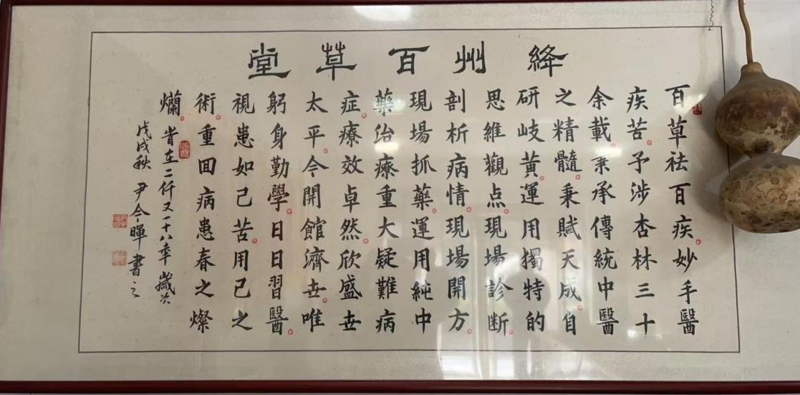 絳州百草堂
百草祛百疾妙手醫
疾苦予涉杏林三十
余載秉承傳統中醫
之精髓秉賦天成自
研岐黄運用獨特的
思維觀点現場診断
剖析病情現場開方
現場抓藥運用純中
藥治療重大疑難病
症療效卓然欣盛世
太平今開館濟世唯
躬身勤學日日習醫
視患如己苦用己之
術重回病患春之燦
爛 时在二仟又一十八年歲次
戊戌秋 尹令暉書之